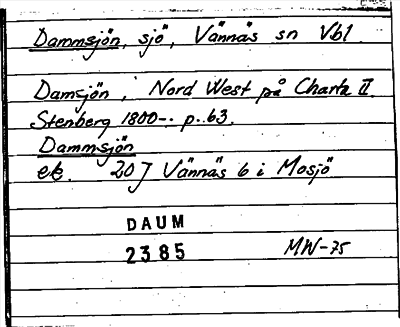 Dammsjön, sjö, Vännäs sn Vbl.
Damsjön, Nord West på Charta II.
Stenberg 1800-. p. 63.
Dammsjön
ek. 20J Vännäs 6 i Mosjö
DAUM
2385 MW-75